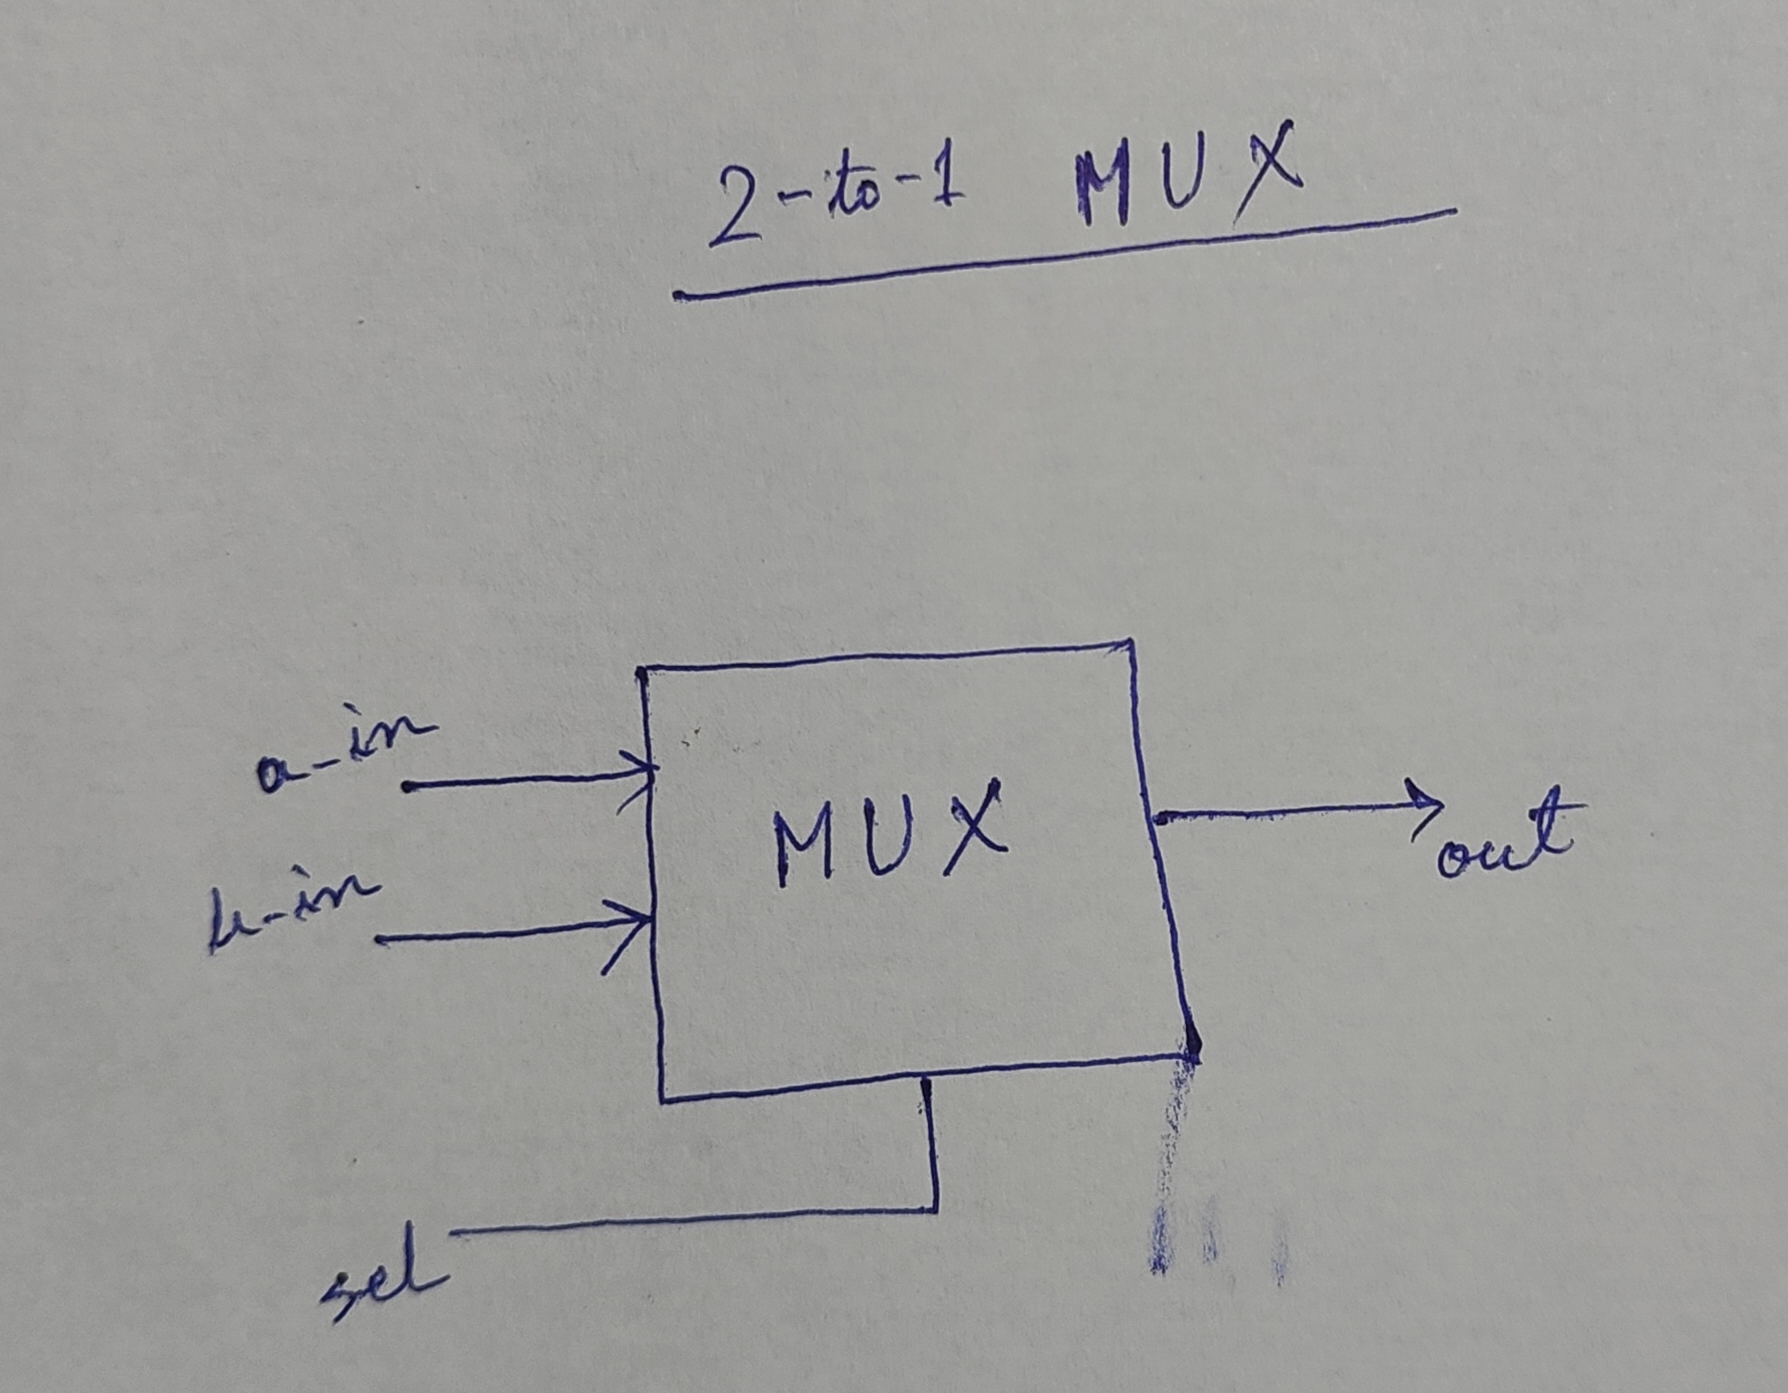 2-to-1 MUX
a-in
b-in
MUX
out
sel